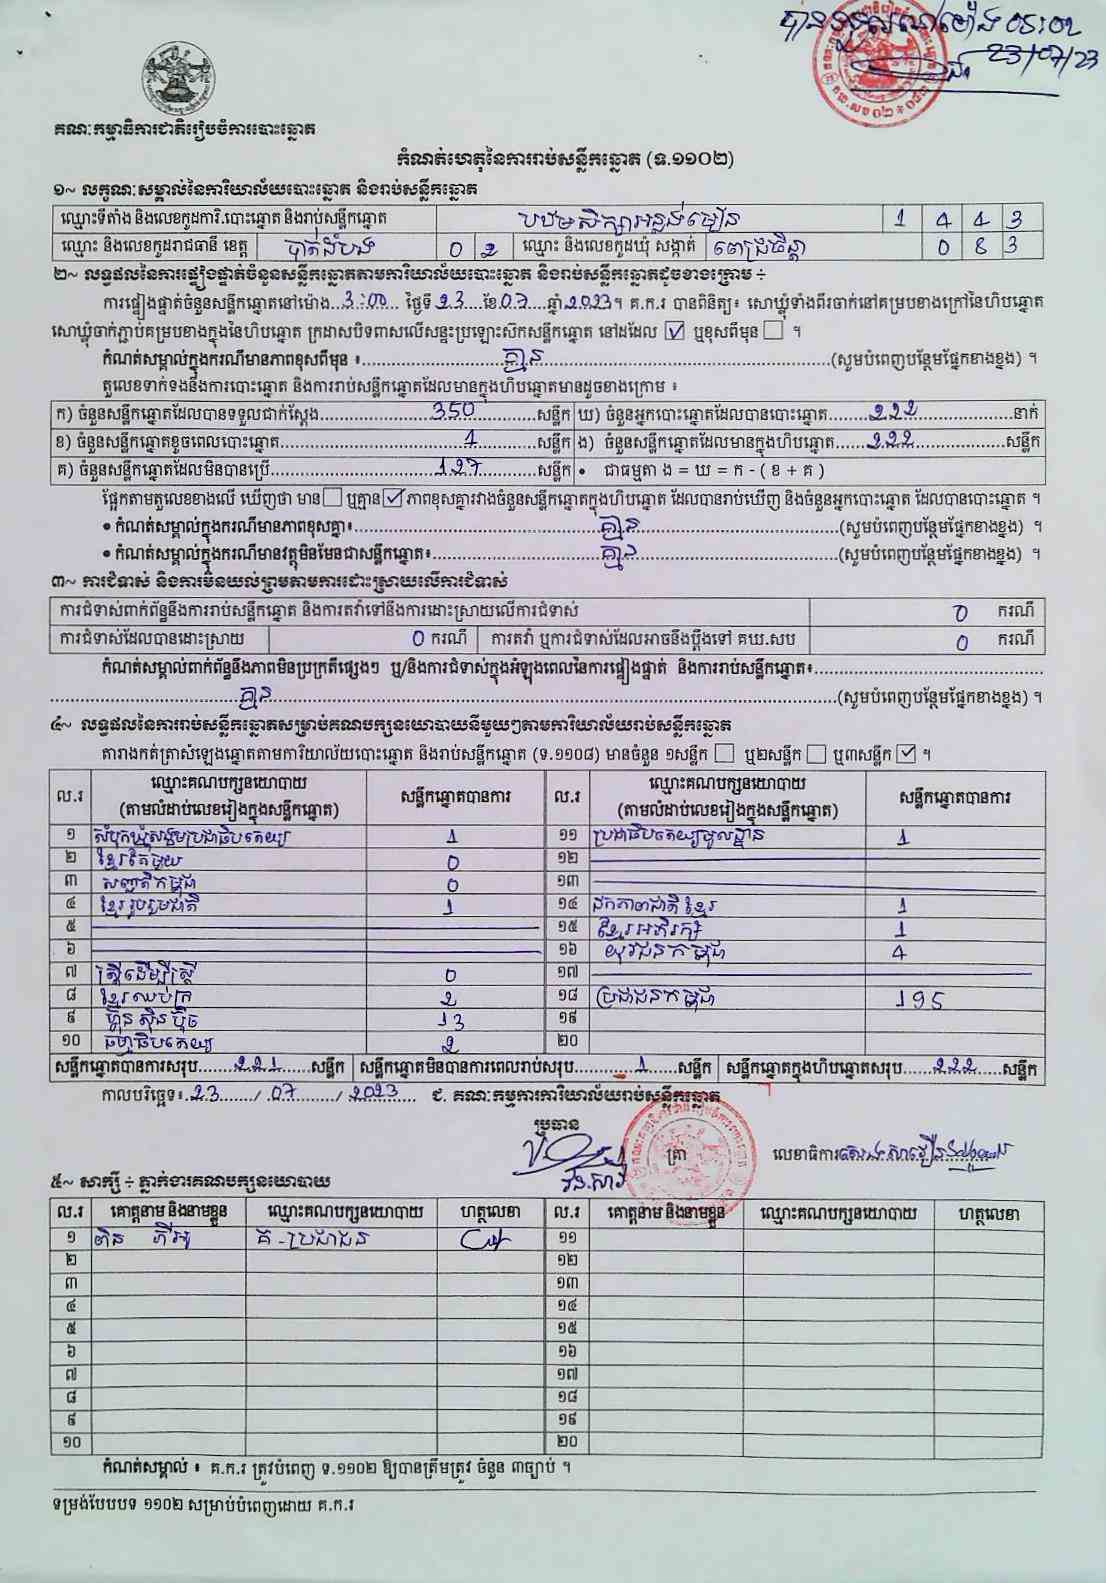 បានទទួលនៅម៉ោង 05:02
23/07/23
គណៈកម្មាធិការជាតិរៀបចំការបោះឆ្នោត
កំណត់ហេតុនៃការរាប់សន្លឹកឆ្នោត (ទ.១១០២)
១~ លក្ខណៈសម្គាល់នៃការិយាល័យបោះឆ្នោត និងរាប់សន្លឹកឆ្នោត
ឈ្មោះទីតាំង និងលេខកូដការិ.បោះឆ្នោត និងរាប់សន្លឹកឆ្នោត បឋមសិក្សាអន្លង់មៀន 1 4 4 3
ឈ្មោះ និងលេខកូដរាជធានី ខេត្ត បាត់ដំបង 0 2 ឈ្មោះ និងលេខកូដឃុំ សង្កាត់ 0 8 3
២~ លទ្ធផលនៃការផ្ទៀងផ្ទាត់ចំនួនសន្លឹកឆ្នោតតាមការិយាល័យបោះឆ្នោត និងរាប់សន្លឹកឆ្នោតដូចខាងក្រោម ÷
ការផ្ទៀងផ្ទាត់ចំនួនសន្លឹកឆ្នោតនៅម៉ោង..3:00.. ថ្ងៃទី 23 ខែ 07 ឆ្នាំ 2023។ គ.ក.រ បានពិនិត្យ៖ សោឃ្លុំទាំងពីរចាក់នៅគម្របខាងក្រៅនៃហិបឆ្នោត
សោឃ្លុំចាក់ភ្ជាប់គម្របខាងក្នុងនៃហិបឆ្នោត ក្រដាសបិទពាសលើសន្ទះប្រឡោះស៊កសន្លឹកឆ្នោត នៅដដែល ☑ ឬខុសពីមុន ☐ ។
កំណត់សម្គាល់ក្នុងករណីមានភាពខុសពីមុន ៖ គ្មាន (សូមបំពេញបន្ថែមផ្នែកខាងខ្នង) ។
តួលេខទាក់ទងនឹងការបោះឆ្នោត និងការរាប់សន្លឹកឆ្នោតដែលមានក្នុងហិបឆ្នោតមានដូចខាងក្រោម ៖
ក) ចំនួនសន្លឹកឆ្នោតដែលបានទទួលជាក់ស្ដែង 350 សន្លឹក ឃ) ចំនួនអ្នកបោះឆ្នោតដែលបានបោះឆ្នោត 222 នាក់
ខ) ចំនួនសន្លឹកឆ្នោតខូចពេលបោះឆ្នោត 1 សន្លឹក ង) ចំនួនសន្លឹកឆ្នោតដែលមានក្នុងហិបឆ្នោត 222 សន្លឹក
គ) ចំនួនសន្លឹកឆ្នោតដែលមិនបានប្រើ 127 សន្លឹក • ជាធម្មតា ង = ឃ = ក - ( ខ + គ )
ផ្អែកតាមតួលេខខាងលើ ឃើញថា មាន ☐ ឬគ្មាន ☑ ភាពខុសគ្នារវាងចំនួនសន្លឹកឆ្នោតក្នុងហិបឆ្នោត ដែលបានរាប់ឃើញ និងចំនួនអ្នកបោះឆ្នោត ដែលបានបោះឆ្នោត ។
• កំណត់សម្គាល់ក្នុងករណីមានភាពខុសគ្នា៖ គ្មាន (សូមបំពេញបន្ថែមផ្នែកខាងខ្នង) ។
• កំណត់សម្គាល់ក្នុងករណីមានវត្ថុមិនមែនជាសន្លឹកឆ្នោត៖ គ្មាន (សូមបំពេញបន្ថែមផ្នែកខាងខ្នង) ។
៣~ ការជំទាស់ និងការមិនយល់ព្រមតាមការដោះស្រាយលើការជំទាស់
ការជំទាស់ពាក់ព័ន្ធនឹងការរាប់សន្លឹកឆ្នោត និងការតវ៉ាទៅនឹងការដោះស្រាយលើការជំទាស់ 0 ករណី
ការជំទាស់ដែលបានដោះស្រាយ 0 ករណី ការតវ៉ា ឬការជំទាស់ដែលអាចនឹងប្ដឹងទៅ គឃ.សប 0 ករណី
កំណត់សម្គាល់ពាក់ព័ន្ធនឹងភាពមិនប្រក្រតីផ្សេងៗ ឬ/និងការជំទាស់ក្នុងអំឡុងពេលនៃការផ្ទៀងផ្ទាត់ និងការរាប់សន្លឹកឆ្នោត៖
គ្មាន (សូមបំពេញបន្ថែមផ្នែកខាងខ្នង) ។
៤~ លទ្ធផលនៃការរាប់សន្លឹកឆ្នោតសម្រាប់គណបក្សនយោបាយនីមួយៗតាមការិយាល័យរាប់សន្លឹកឆ្នោត
តារាងកត់ត្រាសំឡេងឆ្នោតតាមការិយាល័យបោះឆ្នោត និងរាប់សន្លឹកឆ្នោត (ទ.១១០៨) មានចំនួន ១សន្លឹក ☐ ឬ២សន្លឹក ☐ ឬ៣សន្លឹក ☑ ។
ល.រ ឈ្មោះគណបក្សនយោបាយ (តាមលំដាប់លេខរៀងក្នុងសន្លឹកឆ្នោត) សន្លឹកឆ្នោតបានការ ល.រ ឈ្មោះគណបក្សនយោបាយ (តាមលំដាប់លេខរៀងក្នុងសន្លឹកឆ្នោត) សន្លឹកឆ្នោតបានការ
១ សំបុកឃ្មុំសង្គមប្រជាធិបតេយ្យ 1 ១១ ប្រជាធិបតេយ្យមូលដ្ឋាន 1
២ ខ្មែរតែមួយ 0 ១២
៣ សញ្ជាតិកម្ពុជា 0 ១៣
៤ ខ្មែររួបរួមជាតិ 1 ១៤ ឯកភាពជាតិខ្មែរ 1
៥ ១៥ ខ្មែរអភិរក្ស 1
៦ ១៦ យុវជនកម្ពុជា 4
៧ ស្ត្រីដើម្បីស្ត្រី 0 ១៧
៨ ខ្មែរឈប់ក្រ 2 ១៨ ប្រជាជនកម្ពុជា 195
៩ ហ៊្វុនស៊ិនប៉ិច 13 ១៩
១០ ធម្មាធិបតេយ្យ 2 ២០
សន្លឹកឆ្នោតបានការសរុប 221 សន្លឹក សន្លឹកឆ្នោតមិនបានការពេលរាប់សរុប 1 សន្លឹក សន្លឹកឆ្នោតក្នុងហិបឆ្នោតសរុប 222 សន្លឹក
កាលបរិច្ឆេទ៖ 23 / 07 / 2023 ជ. គណៈកម្មការការិយាល័យរាប់សន្លឹកឆ្នោត
ប្រធាន
ត្រា លេខាធិការ
៥~ សាក្សី ÷ ភ្នាក់ងារគណបក្សនយោបាយ
ល.រ គោត្តនាម និងនាមខ្លួន ឈ្មោះគណបក្សនយោបាយ ហត្ថលេខា ល.រ គោត្តនាម និងនាមខ្លួន ឈ្មោះគណបក្សនយោបាយ ហត្ថលេខា
១ គ-ប្រជាជន ១១
២ ១២
៣ ១៣
៤ ១៤
៥ ១៥
៦ ១៦
៧ ១៧
៨ ១៨
៩ ១៩
១០ ២០
កំណត់សម្គាល់ ៖ គ.ក.រ ត្រូវបំពេញ ទ.១១០២ ឱ្យបានត្រឹមត្រូវ ចំនួន ៣ច្បាប់ ។
ទម្រង់បែបបទ ១១០២ សម្រាប់បំពេញដោយ គ.ក.រ